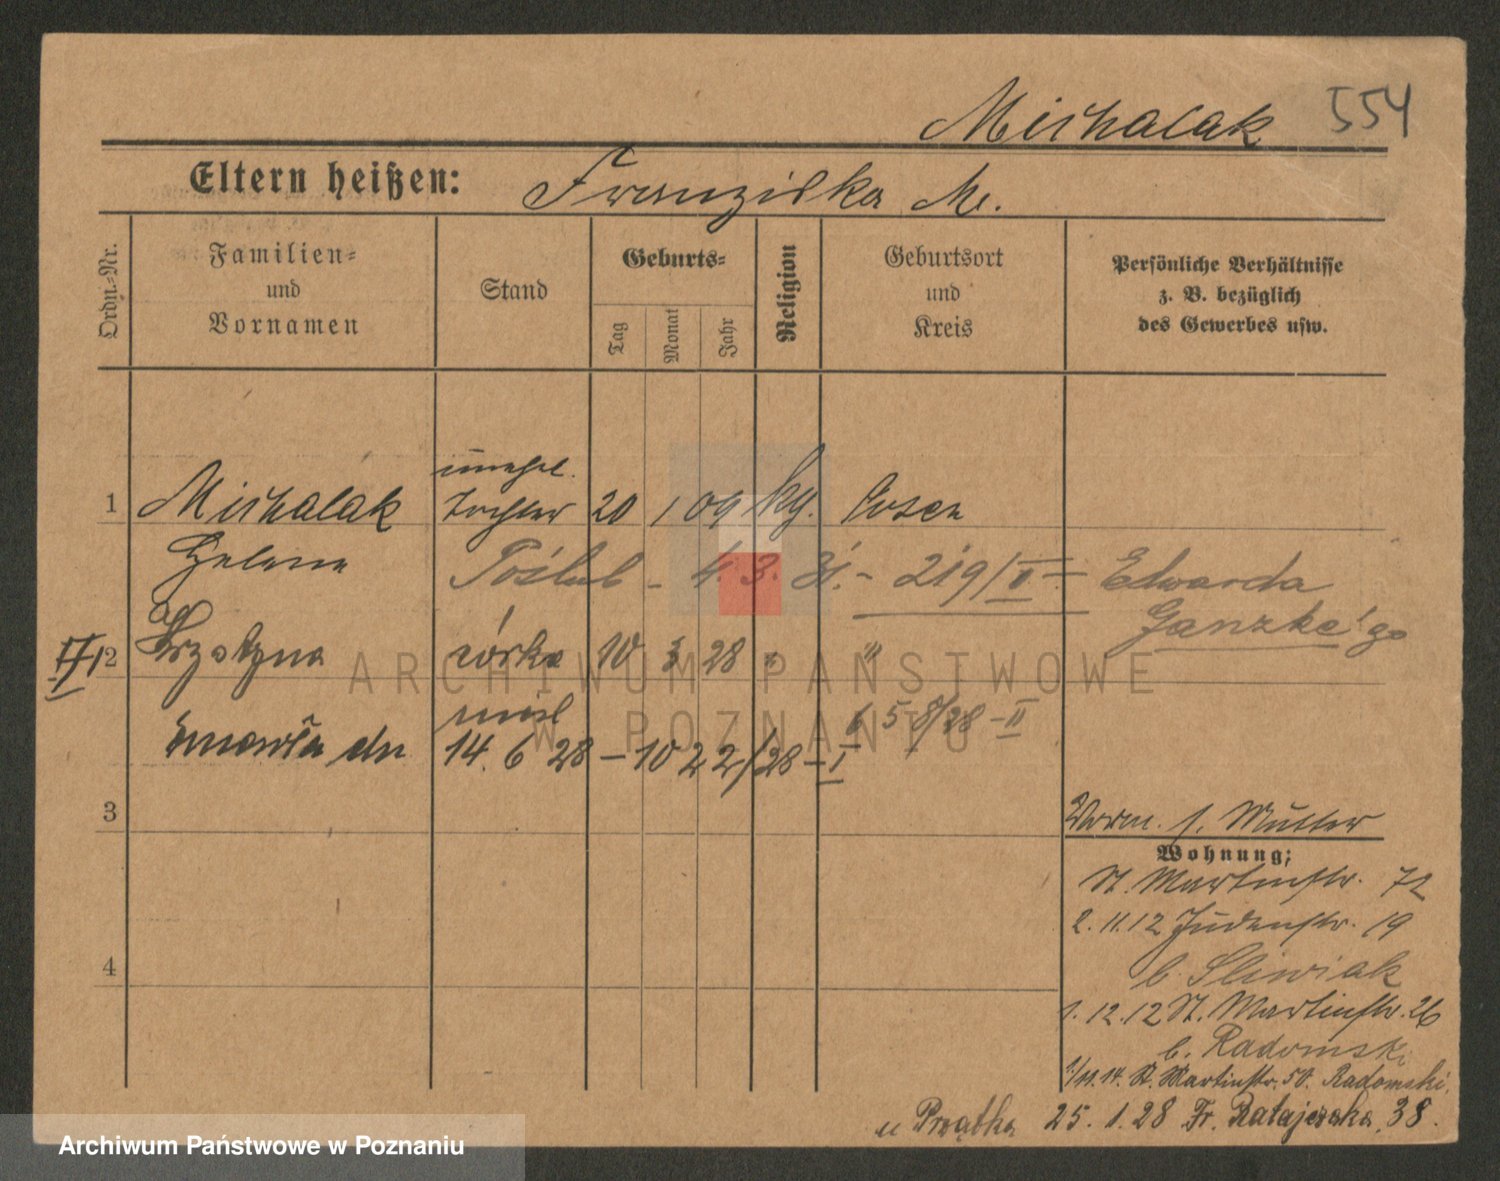 Michalak 554
Eltern heißen: Franziska M.
Ordn.-Nr.
Familien-
und
Vornamen
Stand
Geburts-
Tag
Monat
Jahr
Religion
Geburtsort
und
Kreis
Persönliche Verhältnisse
z. B. bezüglich
des Gewerbes usw.
unehel.
1 Michalak Tochter 20 1 09 kg. Posen
Helena Poślub – 4. 3. 31. – 219/II – Edwarda
Ganzke'go
2 Krzstyna córka 10 3 28 " "
nieśl 658/28 – II
zmarła dn 14. 6 28 – 1022/28 – I
3
Vorm. s. Mutter
Wohnung:
St. Martinstr. 72
2. 11. 12 Judenstr. 19
4
b. Sliwiak
1. 12. 12 St. Martinstr. 26
b. Radomski
1/11. 14. St. Martinstr. 50. Radomski.
u Prządka 25. 1. 28 Fr. Ratajczaka 38.
ARCHIWUM PAŃSTWOWE
W POZNANIU
Archiwum Państwowe w Poznaniu